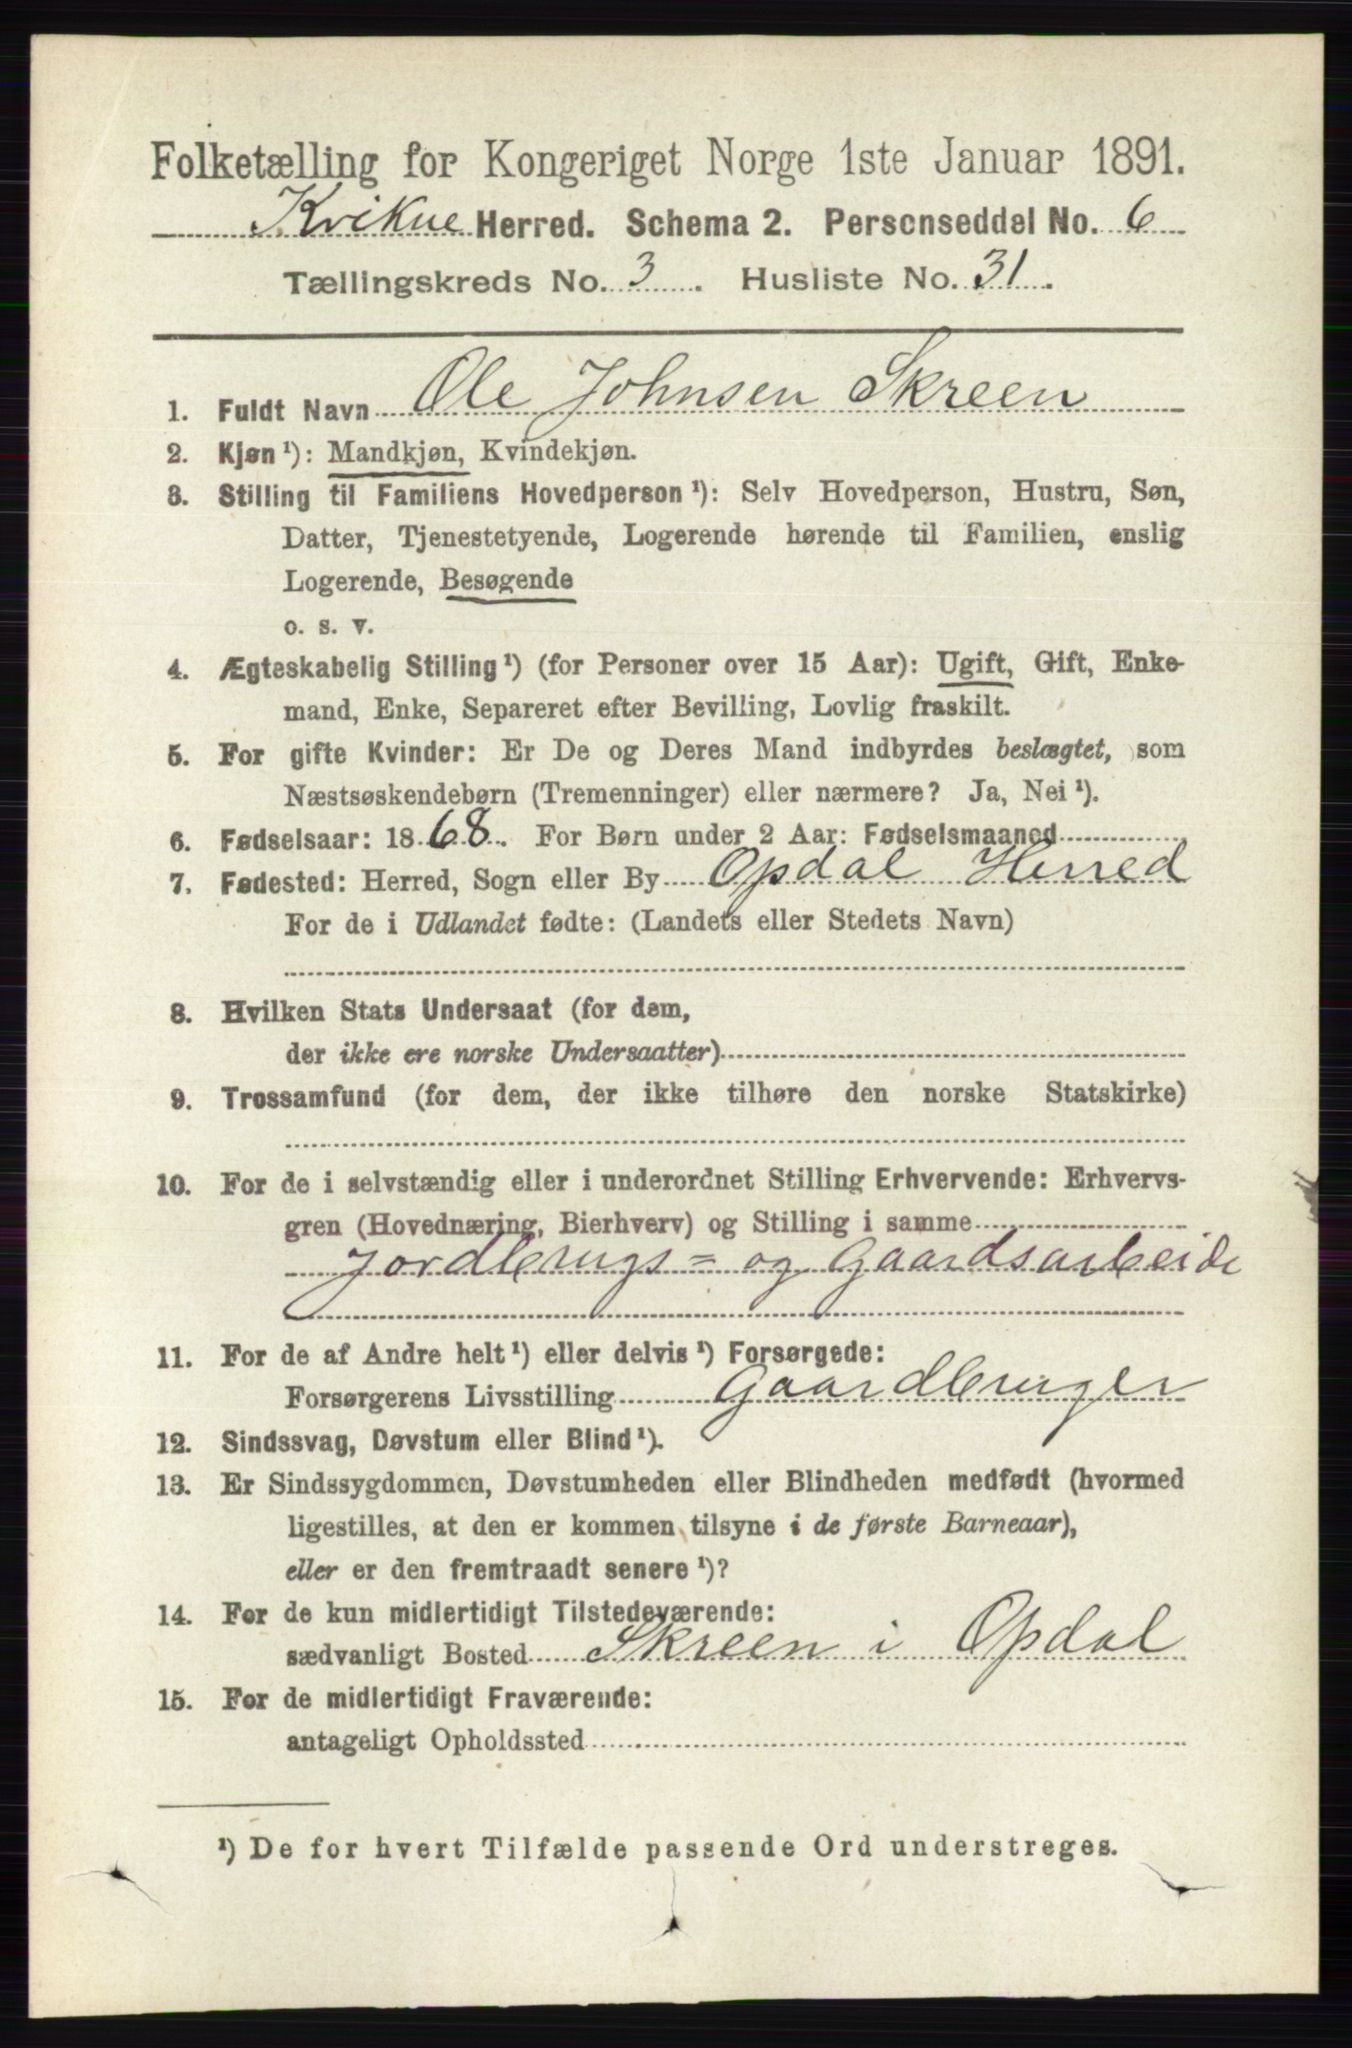 Folketælling for Kongeriget Norge 1ste Januar 1891.
Kvikne Herred. Schema 2. Personseddel No. 6
Tællingskreds No. 3. Husliste No. 31.
1. Fuldt Navn Ole Johnsen Skreen
2. Kjøn¹): Mandkjøn, Kvindekjøn.
3. Stilling til Familiens Hovedperson¹): Selv Hovedperson, Hustru, Søn,
Datter, Tjenestetyende, Logerende hørende til Familien, enslig
Logerende, Besøgende
o. s. v.
4. Ægteskabelig Stilling¹) (for Personer over 15 Aar): Ugift, Gift, Enke-
mand, Enke, Separeret efter Bevilling, Lovlig fraskilt.
5. For gifte Kvinder: Er De og Deres Mand indbyrdes beslægtet, som
Næstsøskendebørn (Tremenninger) eller nærmere? Ja, Nei¹).
6. Fødselsaar: 1868. For Børn under 2 Aar: Fødselsmaaned
7. Fødested: Herred, Sogn eller By Opdal Herred
For de i Udlandet fødte: (Landets eller Stedets Navn)
8. Hvilken Stats Undersaat (for dem,
der ikke ere norske Undersaatter)
9. Trossamfund (for dem, der ikke tilhøre den norske Statskirke)
10. For de i selvstændig eller i underordnet Stilling Erhvervende: Erhvervs-
gren (Hovednæring, Bierhverv) og Stilling i samme
Jordbrugs= og Gaardsarbeide
11. For de af Andre helt¹) eller delvis¹) Forsørgede:
Forsørgerens Livsstilling Gaardbruger
12. Sindssvag, Døvstum eller Blind¹).
13. Er Sindssygdommen, Døvstumheden eller Blindheden medfødt (hvormed
ligestilles, at den er kommen tilsyne i de første Barneaar),
eller er den fremtraadt senere¹)?
14. For de kun midlertidigt Tilstedeværende:
sædvanligt Bosted Skreen i Opdal
15. For de midlertidigt Fraværende:
antageligt Opholdssted
¹) De for hvert Tilfælde passende Ord understreges.